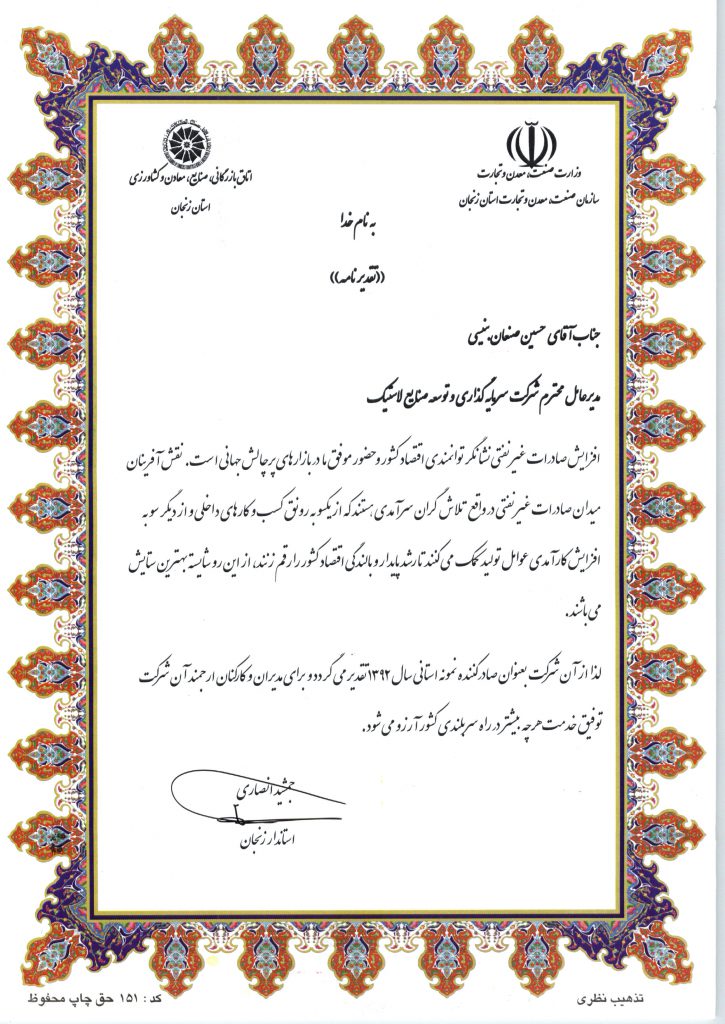 وزارت صنعت، معدن و تجارت
سازمان صنعت، معدن و تجارت استان زنجان
اتاق بازرگانی، صنایع، معادن و کشاورزی
استان زنجان
به نام خدا
((تقدیر نامه))
جناب آقای حسین صنعان بنیسی
مدیرعامل محترم شرکت سرمایه گذاری و توسعه صنایع لاستیک
افزایش صادرات غیرنفتی نشانگر توانمندی اقتصاد کشور و حضور موفق ما در بازارهای پرچالش جهانی است. نقش آفرینان
میدان صادرات غیرنفتی در واقع تلاش گران سرآمدی هستند که از یکسو به رونق کسب و کارهای داخلی و از دیگر سو به
افزایش کارآمدی عوامل تولید کمک می کنند تا رشد پایدار و بالندگی اقتصاد کشور را رقم زنند، از این رو شایسته بهترین ستایش
می باشند.
لذا از آن شرکت بعنوان صادرکننده نمونه استانی سال ۱۳۹۲ تقدیر می گردد و برای مدیران و کارکنان ارجمند آن شرکت
توفیق خدمت هرچه بیشتر در راه سربلندی کشور آرزو می شود.
جمشید انصاری
استاندار زنجان
تذهیب نظری
کد : ۱۵۱ حق چاپ محفوظ